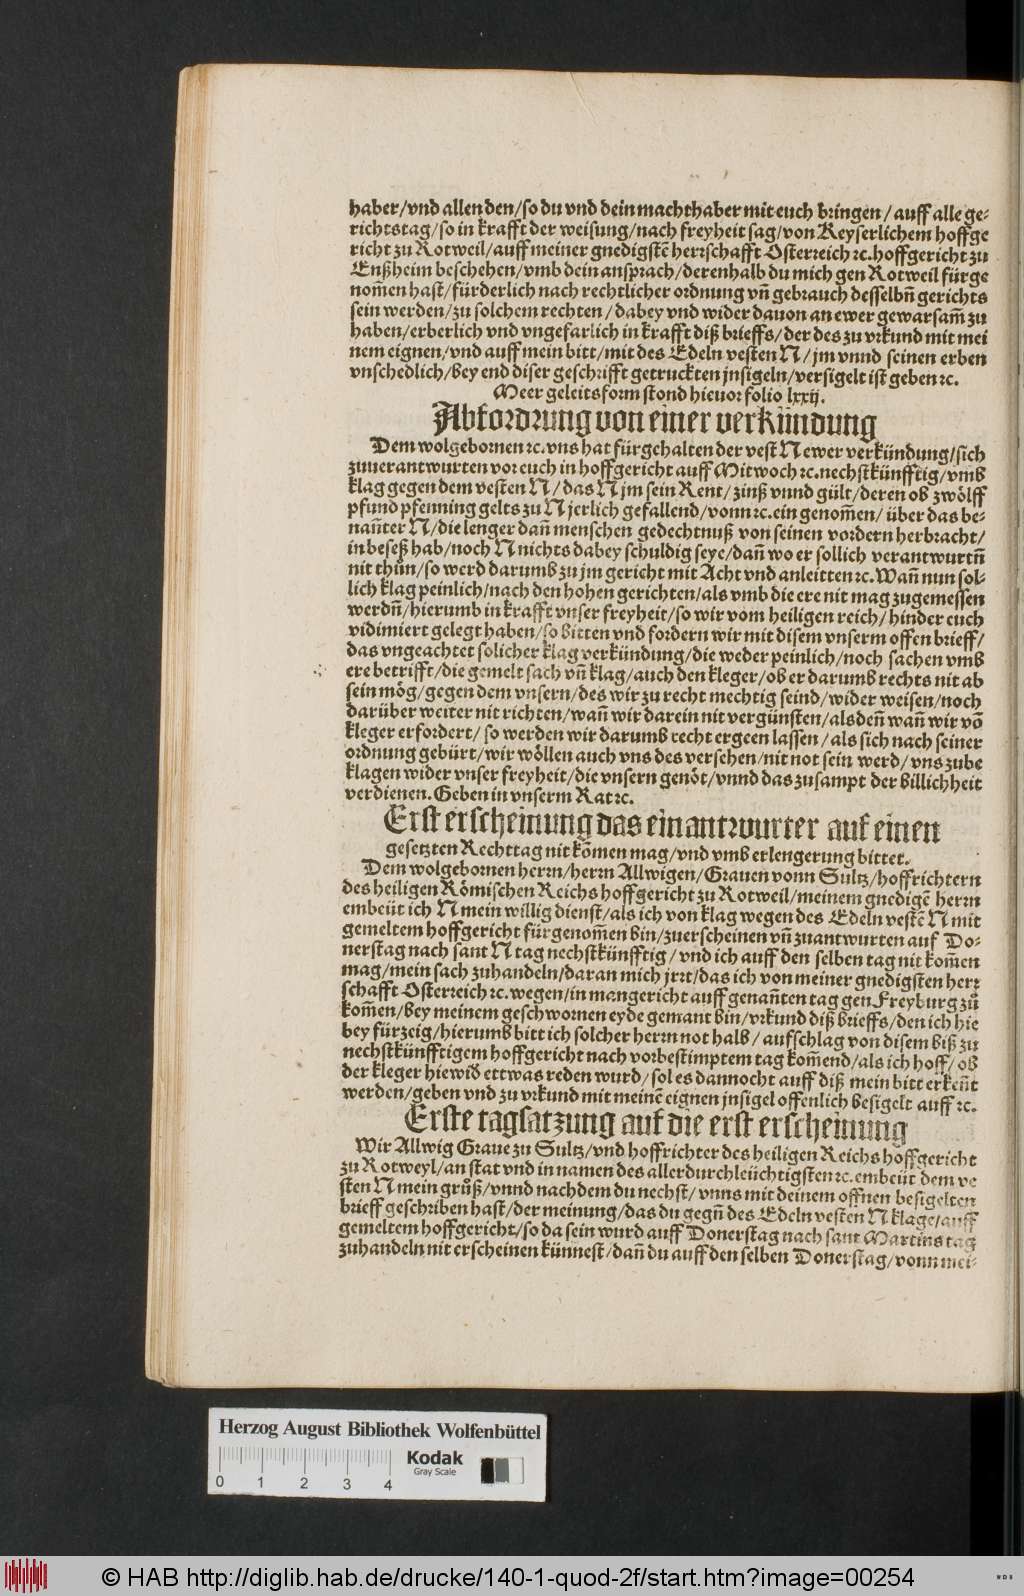 haber/vnd allen den/so du vnd dein machthaber mit euch bringen/auff alle ge-
richtstag/so in krafft der weisung/nach freyheit sag/von Keyserlichem hoffge
richt zu Rotweil/auff meiner gnedigstē herrschafft Osterreich ꝛc.hoffgericht zu
Enßheim beschehen/vmb dein ansprach/derenhalb du mich gen Rotweil fürge
nom̄en hast/fürderlich nach rechtlicher ordnung vn̄ gebrauch desselbn̄ gerichts
sein werden/zu solchem rechten/dabey vnd wider dauon an ewer gewarsam̄ zu
haben/erberlich vnd vngefarlich in krafft diß brieffs/der des zu vrkund mit mei
nem eignen/vnd auff mein bitt/mit des Edeln vesten N/jm vnnd seinen erben
vnschedlich/bey end diser geschrifft getruckten jnsigeln/versigelt ist geben ꝛc.
Meer geleitsform stond hieuor folio lxxij.
Abfordrung von einer verkündung
Dem wolgebornen ꝛc.vns hat fürgehalten der vest N ewer verkündung/sich
zuuerantwurten vor euch in hoffgericht auff Mitwoch ꝛc.nechstkünfftig/vmb
klag gegen dem vesten N/das N jm sein Rent/zinß vnnd gült/deren ob zwölff
pfund pfenning gelts zu N jerlich gefallend/vonn ꝛc.ein genom̄en/über das be-
nan̄ter N/die lenger dan̄ menschen gedechtnuß von seinen vordern herbracht/
in beseß hab/noch N nichts dabey schuldig seye/dan̄ wo er sollich verantwurtn̄
nit thuͦn/so werd darumb zu jm gericht mit Acht vnd anleitten ꝛc.Wan̄ nun sol-
lich klag peinlich/nach den hohen gerichten/als vmb die ere nit mag zugemessen
werdn̄/hierumb in krafft vnser freyheit/so wir vom heiligen reich/hinder euch
vidimiert gelegt haben/so bitten vnd fordern wir mit disem vnserm offen brieff/
das vngeachtet solicher klag verkündung/die weder peinlich/noch sachen vmb
ere betrifft/die gemelt sach vn̄ klag/auch den kleger/ob er darumb rechts nit ab
sein mög/gegen dem vnsern/des wir zu recht mechtig seind/wider weisen/noch
darüber weiter nit richten/wan̄ wir darein nit vergünsten/alsden̄ wan̄ wir vō
kleger erfordert/so werden wir darumb recht ergeen lassen/als sich nach seiner
ordnung gebürt/wir wöllen auch vns des versehen/nit not sein werd/vns zube
klagen wider vnser freyheit/die vnsern genöt/vnnd das zusampt der billichheit
verdienen.Geben in vnserm Rat ꝛc.
Erst erscheinung das ein antwurter auf einen
gesetzten Rechttag nit kōmen mag/vnd vmb erlengerung bittet.
Dem wolgebornen herrn/herrn Allwigen/Grauen vonn Sultz/hoffrichtern
des heiligen Römischen Reichs hoffgericht zu Rotweil/meinem gnedigē herrn
embeüt ich N mein willig dienst/als ich von klag wegen des Edeln vestē N mit
gemeltem hoffgericht fürgenom̄en bin/zuerscheinen vn̄ zuantwurten auf Do-
nerstag nach sant N tag nechstkünfftig/vnd ich auff den selben tag nit kom̄en
mag/mein sach zuhandeln/daran mich jrrt/das ich von meiner gnedigsten herr
schafft Osterreich ꝛc.wegen/in mangericht auff genan̄ten tag gen Freyburg zuͦ
kom̄en/bey meinem geschwornen eyde gemant bin/vrkund diß brieffs/den ich hie
bey fürzeig/hierumb bitt ich solcher herrn not halb/aufschlag von disem biß zu
nechstkünfftigem hoffgericht nach vorbestimptem tag kom̄end/als ich hoff/ob
der kleger hiewid̄ ettwas reden wurd/sol es dannocht auff diß mein bitt erken̄t
werden/geben vnd zu vrkund mit meinē eignen jnsigel offenlich besigelt auff ꝛc.
Erste tagsatzung auf die erst erscheinung
Wir Allwig Graue zu Sultz/vnd hoffrichter des heiligen Reichs hoffgericht
zu Rotweyl/an stat vnd in namen des allerdurchleüchtigsten ꝛc.embeüt dem ve
sten N mein gruͦß/vnnd nachdem du nechst/vnns mit deinem offnen besigelten
brieff geschriben hast/der meinung/das du gegn̄ des Edeln vesten N klage/auff
gemeltem hoffgericht/so da sein wurd auff Donerstag nach sant Martins tag
zuhandeln nit erscheinen künnest/dan̄ du auff den selben Donerstag/vonn mei-
Herzog August Bibliothek Wolfenbüttel
Kodak
Gray Scale
0 1 2 3 4
© HAB http://diglib.hab.de/drucke/140-1-quod-2f/start.htm?image=00254